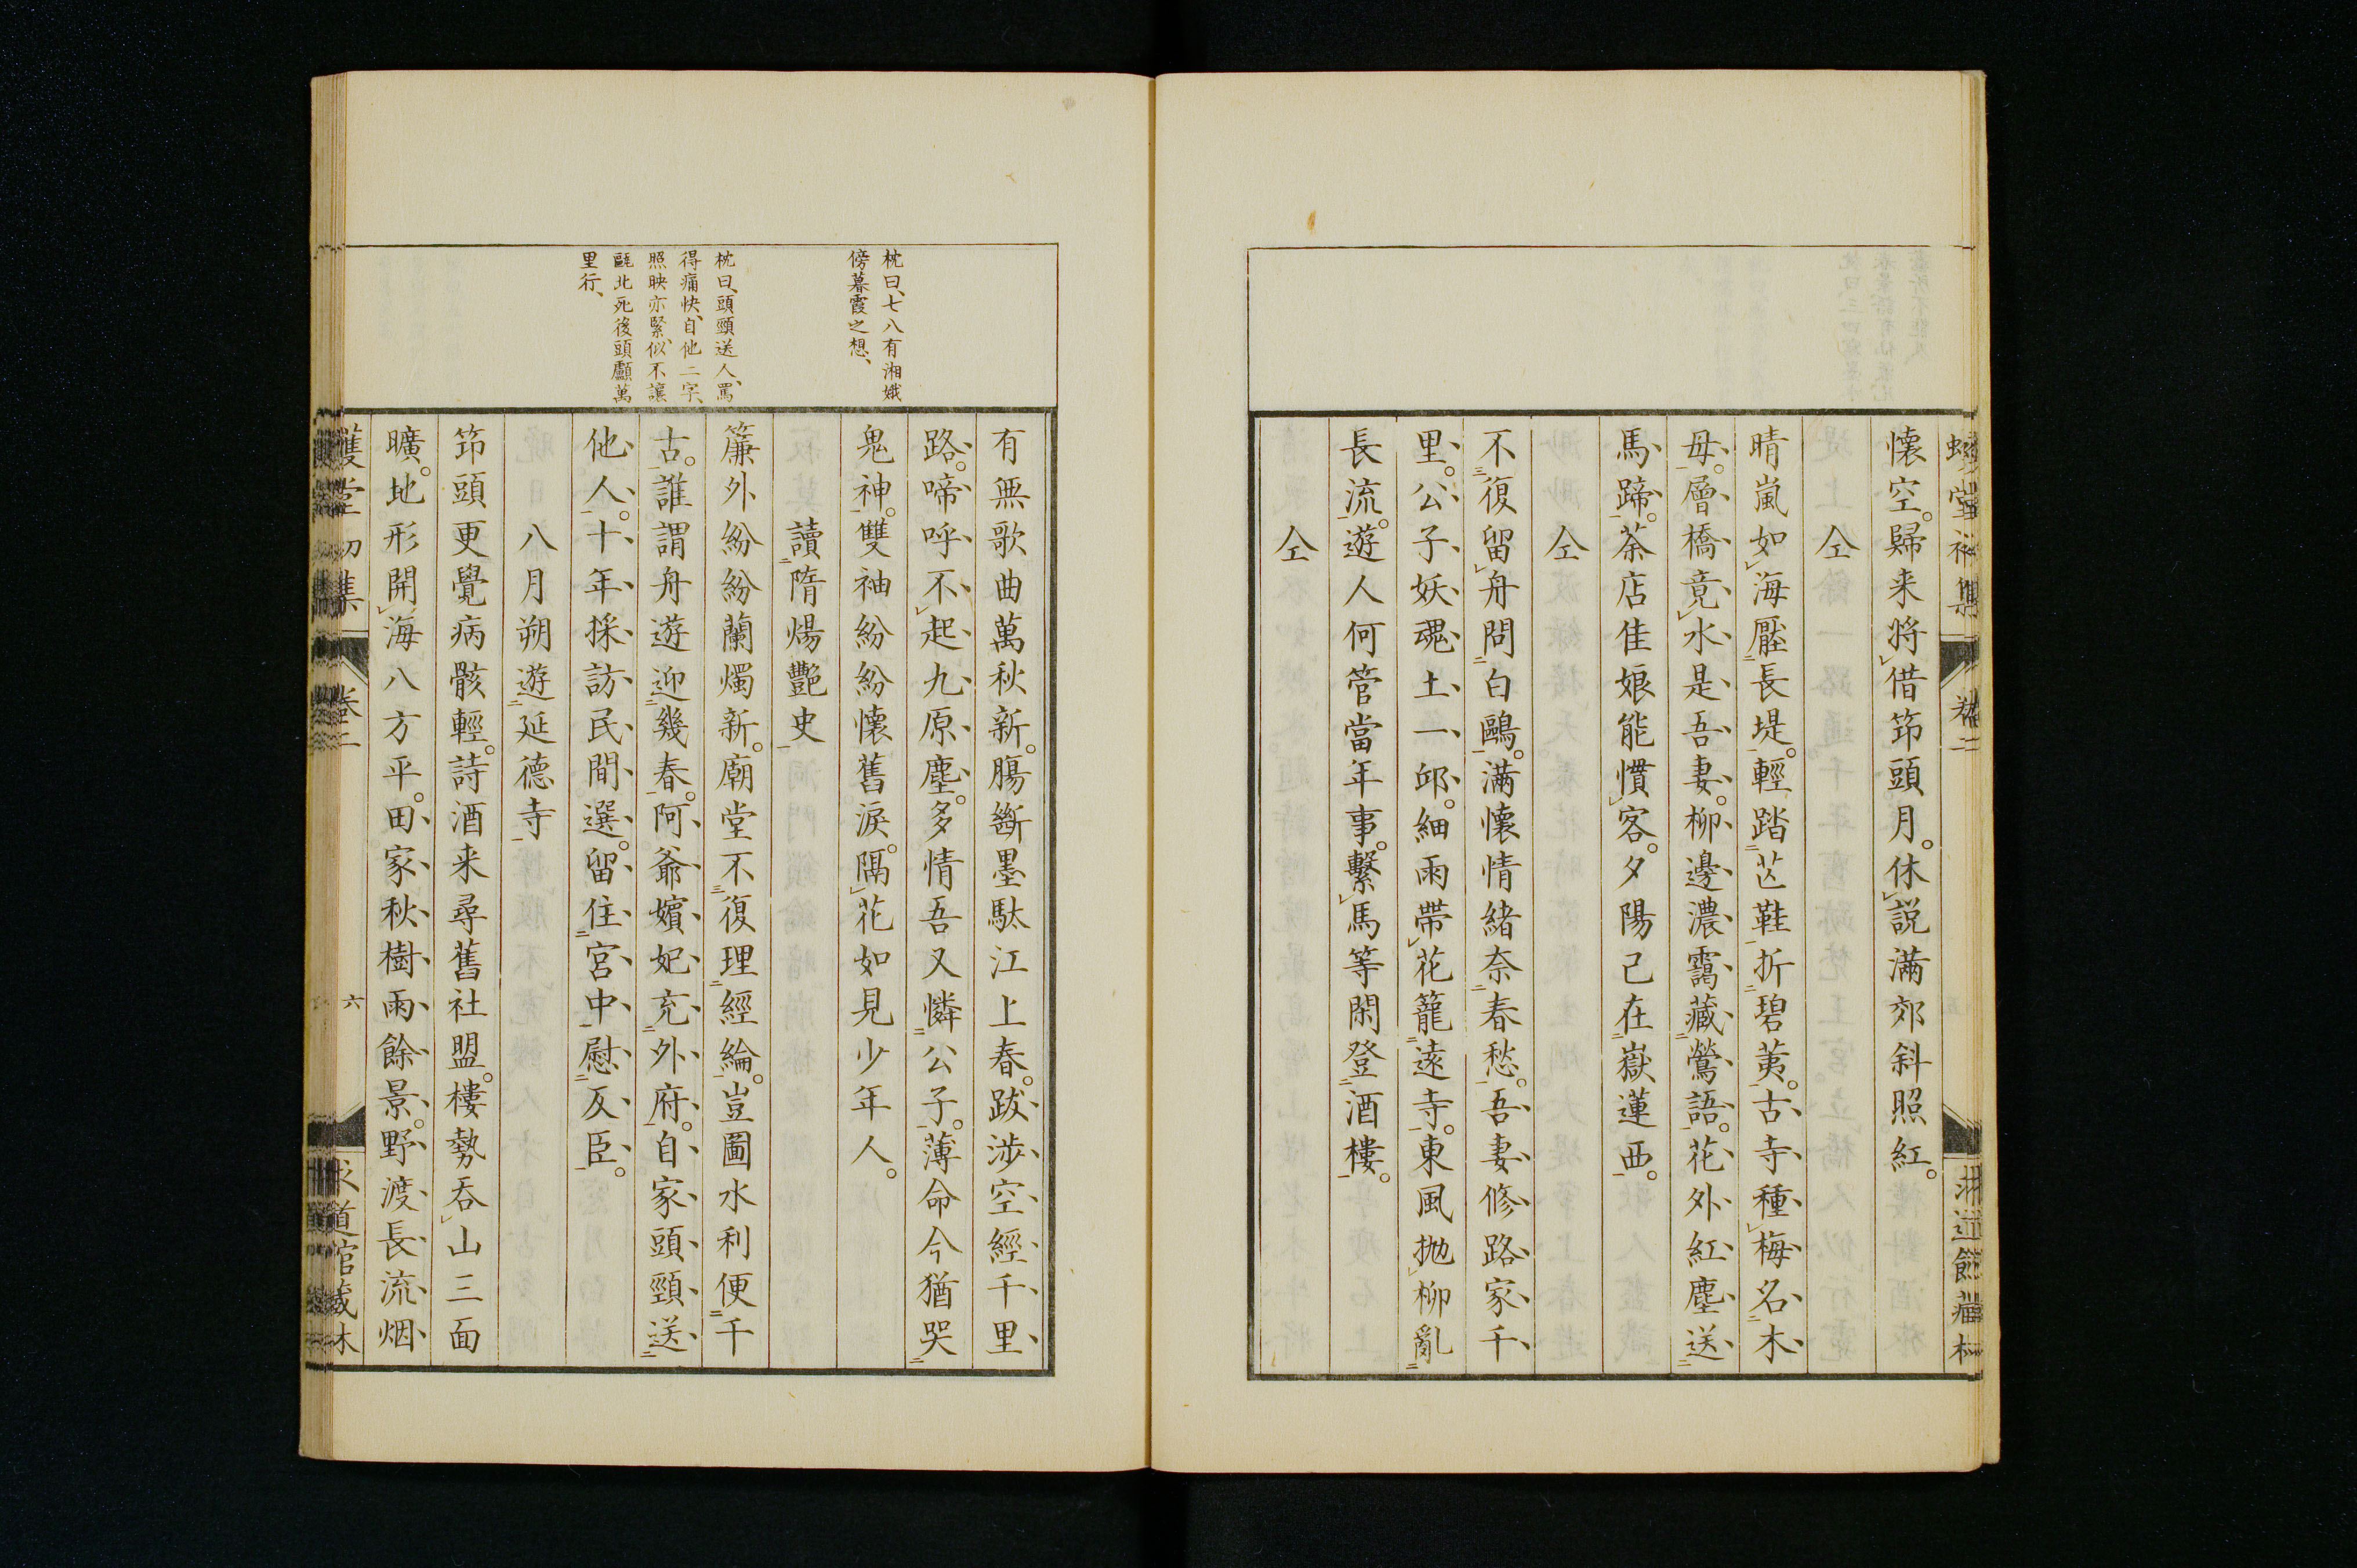 懐空。歸来将借筇頭月。休説滿郊斜照紅。
仝
晴嵐如海壓長堤。輕踏芒鞋折碧荑。古寺種梅名木
母。層橋竟水是吾妻。柳邊濃靄藏鶯語。花外紅塵送
馬蹄。茶店佳娘能慣客。夕陽已在嶽蓮西。
仝
不復留舟問白鷗。滿懐情緒奈春愁。吾妻修路家千
里。公子妖魂土一邱。細雨帶花籠遠寺。東風抛柳亂
長流。遊人何管當年事。繫馬等閑登酒樓。
仝
有無歌曲萬秋新。膓斷墨駄江上春。跋渉空經千里
路。啼呼不起九原塵。多情吾又憐公子。薄命今猶哭
鬼神。雙袖紛紛懐舊涙。隔花如見少年人。
讀隋煬艷史
簾外紛紛蘭燭新。廟堂不復理經綸。豈圖水利便千
古。誰謂舟遊迎幾春。阿爺嬪妃充外府。自家頭頸送
他人。十年採訪民間選。留住宮中慰仄臣。
八月朔遊延德寺
筇頭更覺病骸輕。詩酒来尋舊社盟。樓勢呑山三面
曠。地形開海八方平。田家秋樹雨餘景。野渡長流烟
枕曰、七八有湘娥
傍暮霞之想、
枕曰、頭頸送人、罵
得痛快、自他二字、
照映亦緊、似不讓
甌北死後頭顱萬
里行、
卷二
六